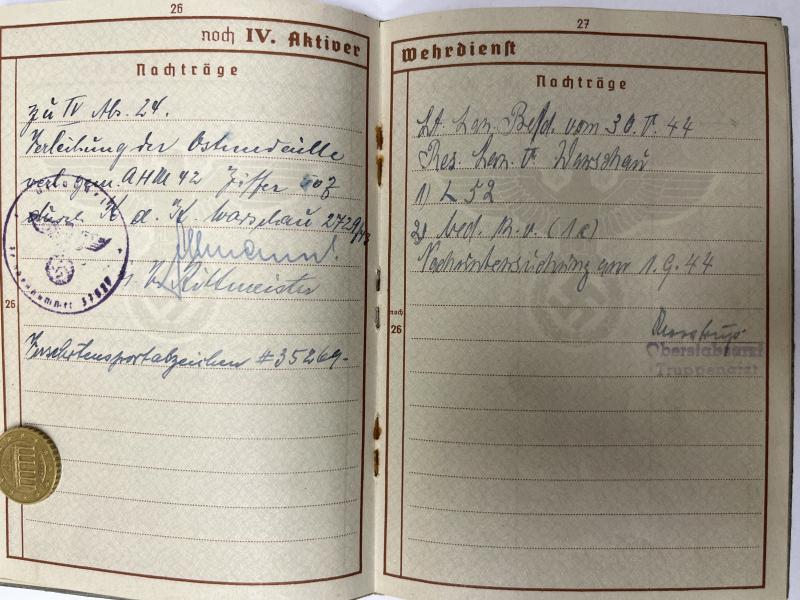 26
noch IV. Aktiver
Nachträge
zu IV Abs. 24.
Verleihung der Ostmedaille
verl. gem. AHM 42 Ziffer
d. K. Warschau
Rittmeister
26
Versehrtensportabzeichen # 35269.
27
Wehrdienst
Nachträge
Lt. Laz. Befd. vom 30. V. 44
Res. Laz. V Warschau
1) L 52
2) bed. k. v. (1a)
Nachuntersuchung am 1.9.44
noch
26
Oberstabsarzt
Truppenarzt